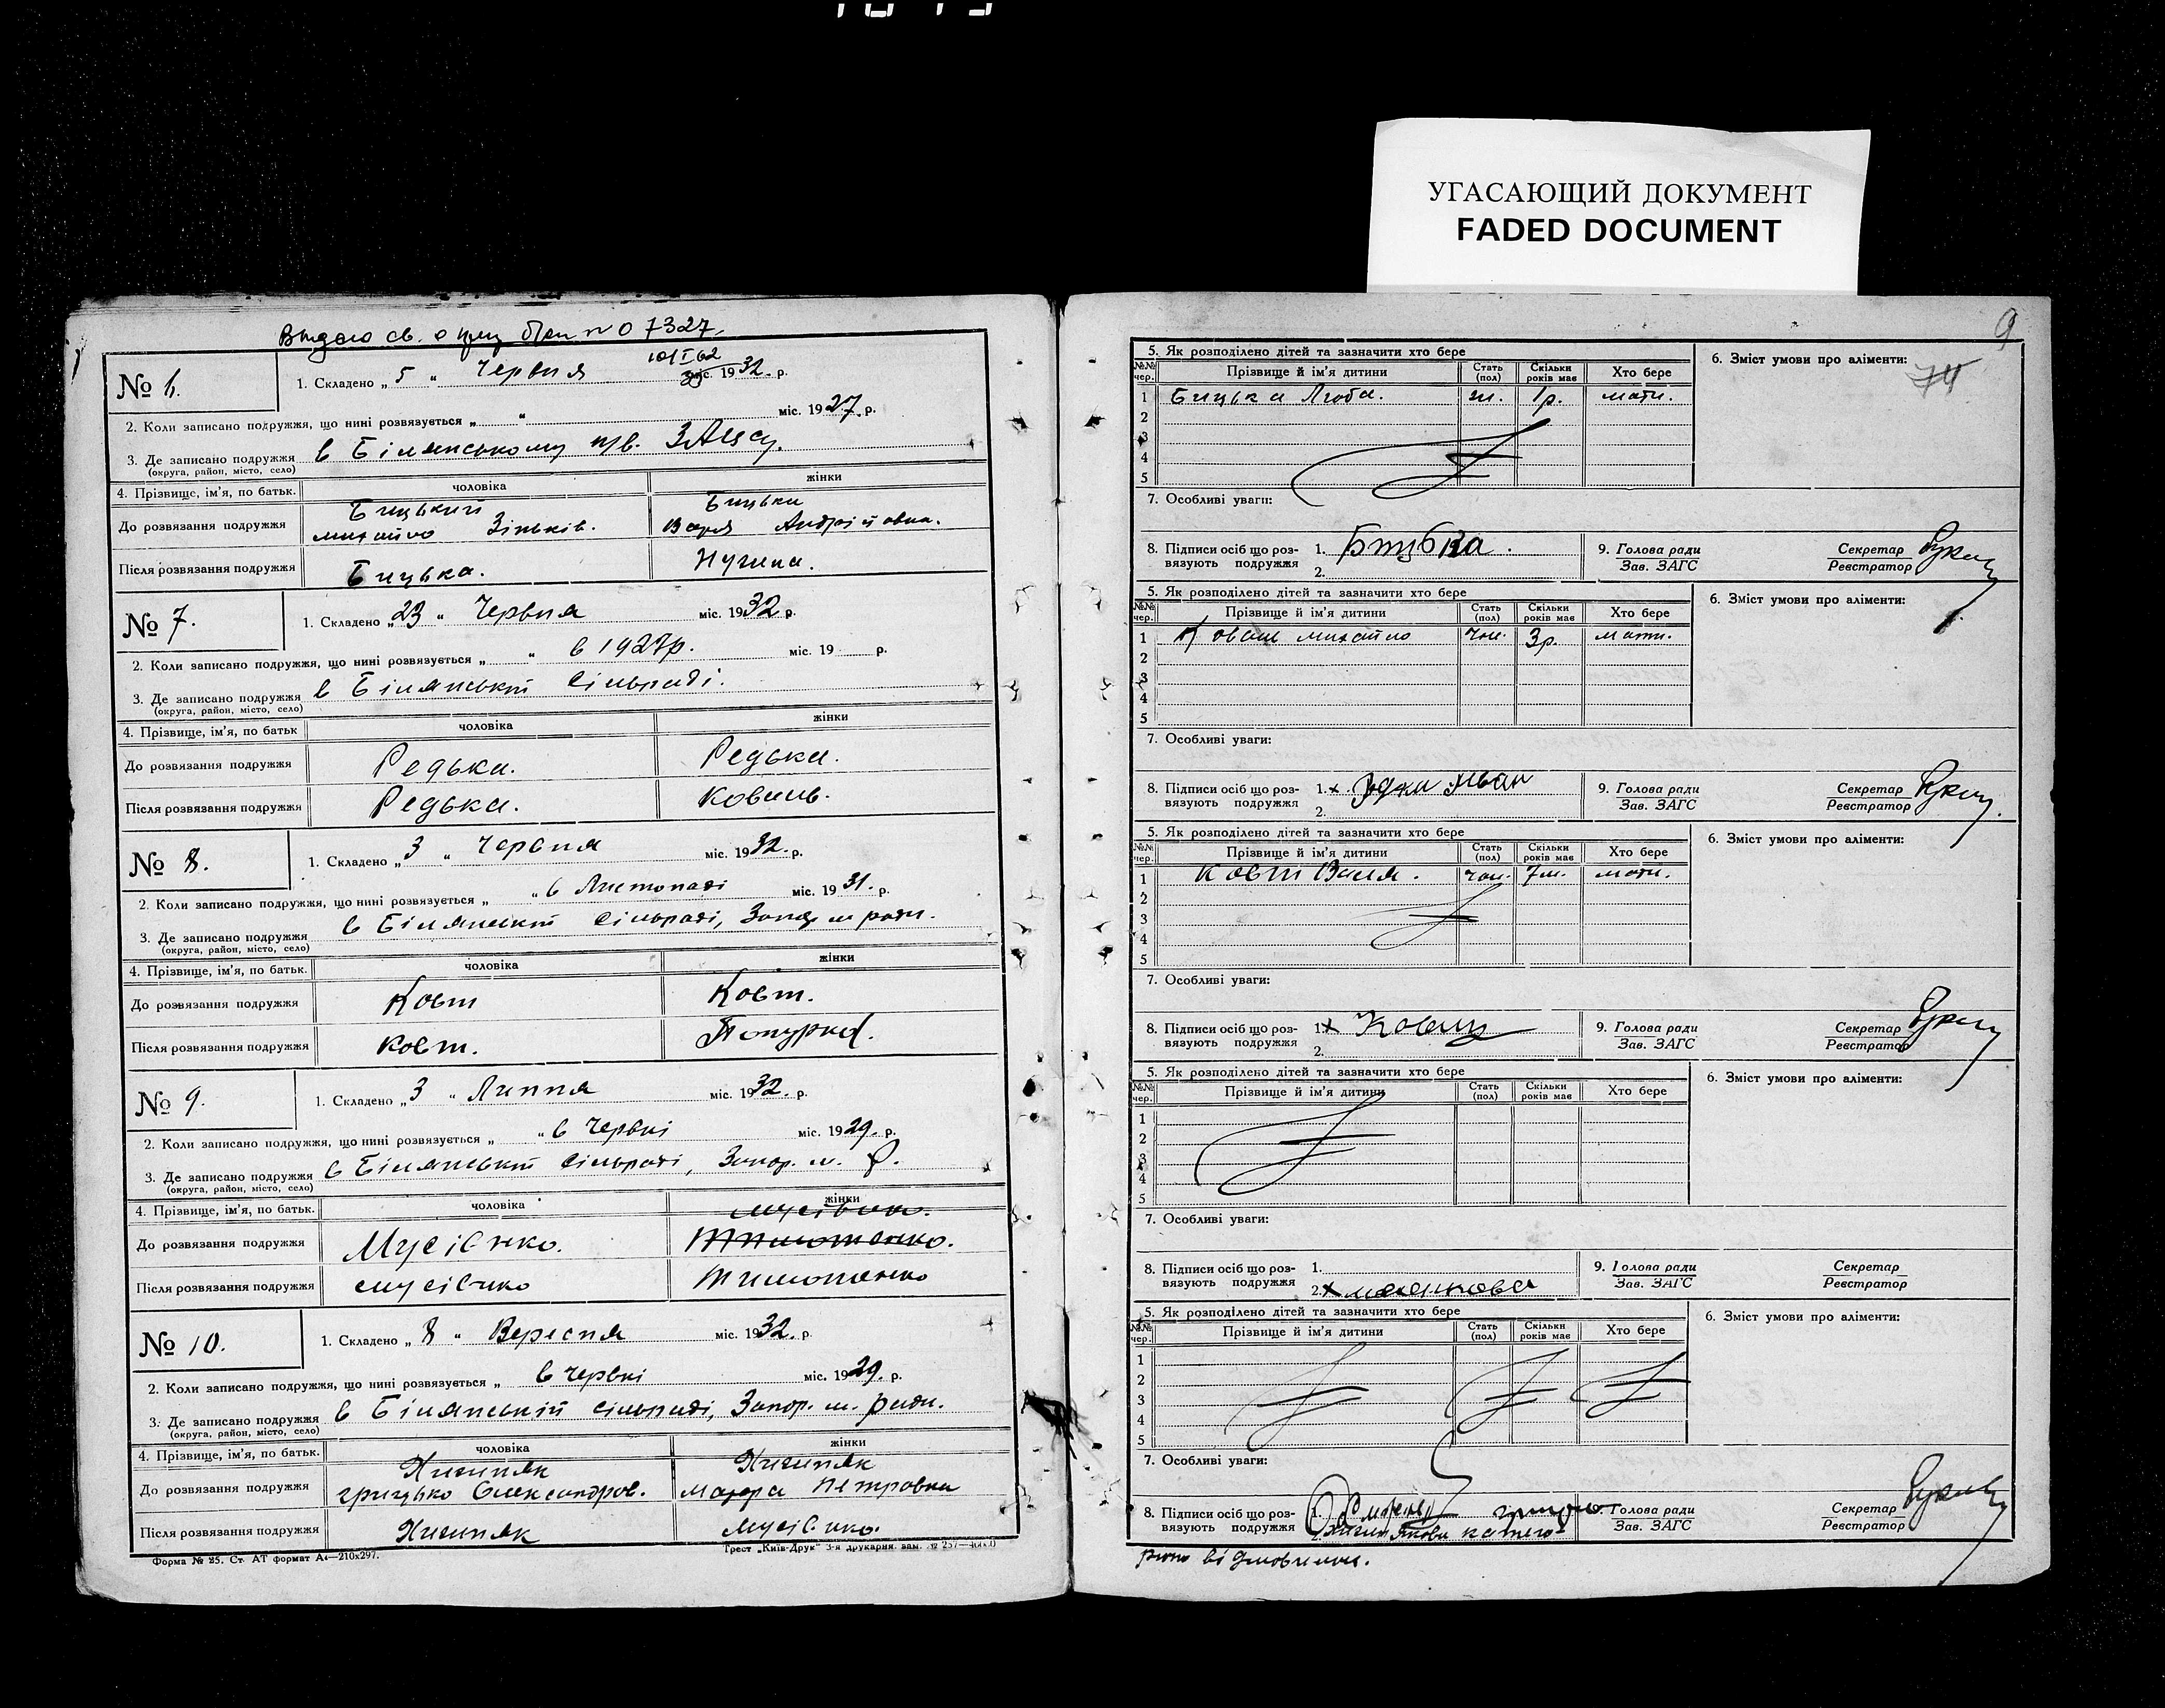 УГАСАЮЩИЙ ДОКУМЕНТ
FADED DOCUMENT
№ 07327.
№ 6.
1. Складено „ 5 “ Червня міс. 1932. р.
2. Коли записано подружжя, що нині розвязується „ “ міс. 1927. р.
3. Де записано подружжя в Білянському ЗАГСу.
(округа, район, місто, село)
4. Прізвище, ім'я, по батьк. чоловіка жінки
Бицький Бицька
До розвязання подружжя Михайло Зіньків. Варя Андрійовна.
Після розвязання подружжя Бицька.
№ 7.
1. Складено „ 23 “ Червня міс. 1932 р.
2. Коли записано подружжя, що нині розвязується „ “ в 1927р. міс. 19 р.
3. Де записано подружжя в Білянській Сільраді.
(округа, район, місто, село)
4. Прізвище, ім'я, по батьк чоловіка жінки
До розвязання подружжя Редька. Редька.
Після розвязання подружжя Редька. Коваль.
№ 8.
1. Складено „ 3 “ Червня міс. 1932. р.
2. Коли записано подружжя, що нині розвязується „ “ в Листопаді міс. 1931. р.
3. Де записано подружжя в Білянській Сільраді, м ради.
(округа, район, місто, село)
4. Прізвище, ім'я, по батьк. чоловіка жінки
До розвязання подружжя Ковт Ковт.
Після розвязання подружжя Ковт.
№ 9.
1. Складено „ 3 “ Липня міс. 1932. р.
2. Коли записано подружжя, що нині розвязується „ “ в Червні міс. 1929. р.
3. Де записано подружжя в Білянській Сільраді, Запор. м. Р.
(округа, район, місто, село)
4. Прізвище, ім'я, по батьк. чоловіка жінки
До розвязання подружжя Мусієнко.
Після розвязання подружжя Мусієнко Тимошенко
№ 10.
1. Складено „ 8 “ Вересня міс. 1932. р.
2. Коли записано подружжя, що нині розвязується „ в Червні міс. 1929. р.
3. Де записано подружжя в Білянській Сільраді, Запор. м. ради.
(округа, район, місто, село)
4. Прізвище, ім'я, по батьк. чоловіка жінки
До розвязання подружжя Грицько Олександров. Петровна
Після розвязання подружжя Мусієнко.
Форма № 25. Ст. АТ формат А4—210x297.
Трест „Київ-Друк“ 3-я друкарня.
9
74
5. Як розподілено дітей та зазначити хто бере
6. Зміст умови про аліменти:
№№ чер. Прізвище й ім'я дитини Стать (пол) Скільки років має Хто бере
1 Бицька Люба. ж. 1р. мати.
2
3
4
5
7. Особливі уваги:
8. Підписи осіб що розвязують подружжя 1. 2.
9. Голова ради Зав. ЗАГС Секретар Реєстратор
5. Як розподілено дітей та зазначити хто бере
6. Зміст умови про аліменти:
№№ чер. Прізвище й ім'я дитини Стать (пол) Скільки років має Хто бере
1 Михайло чол. 3р. мати.
2
3
4
5
7. Особливі уваги:
8. Підписи осіб що розвязують подружжя 1. х Іван 2.
9. Голова ради Зав. ЗАГС Секретар Реєстратор
5. Як розподілено дітей та зазначити хто бере
6. Зміст умови про аліменти:
№№ чер. Прізвище й ім'я дитини Стать (пол) Скільки років має Хто бере
1 Ковт Ваня. чол. 7м. мати.
2
3
4
5
7. Особливі уваги:
8. Підписи осіб що розвязують подружжя 1. х 2.
9. Голова ради Зав. ЗАГС Секретар Реєстратор
5. Як розподілено дітей та зазначити хто бере
6. Зміст умови про аліменти:
№№ чер. Прізвище й ім'я дитини Стать (пол) Скільки років має Хто бере
1
2
3
4
5
7. Особливі уваги:
8. Підписи осіб що розвязують подружжя 1. 2. х
9. Голова ради Зав. ЗАГС Секретар Реєстратор
5. Як розподілено дітей та зазначити хто бере
6. Зміст умови про аліменти:
№№ чер. Прізвище й ім'я дитини Стать (пол) Скільки років має Хто бере
1
2
3
4
5
7. Особливі уваги:
8. Підписи осіб що розвязують подружжя 1. 2.
9. Голова ради Зав. ЗАГС Секретар Реєстратор